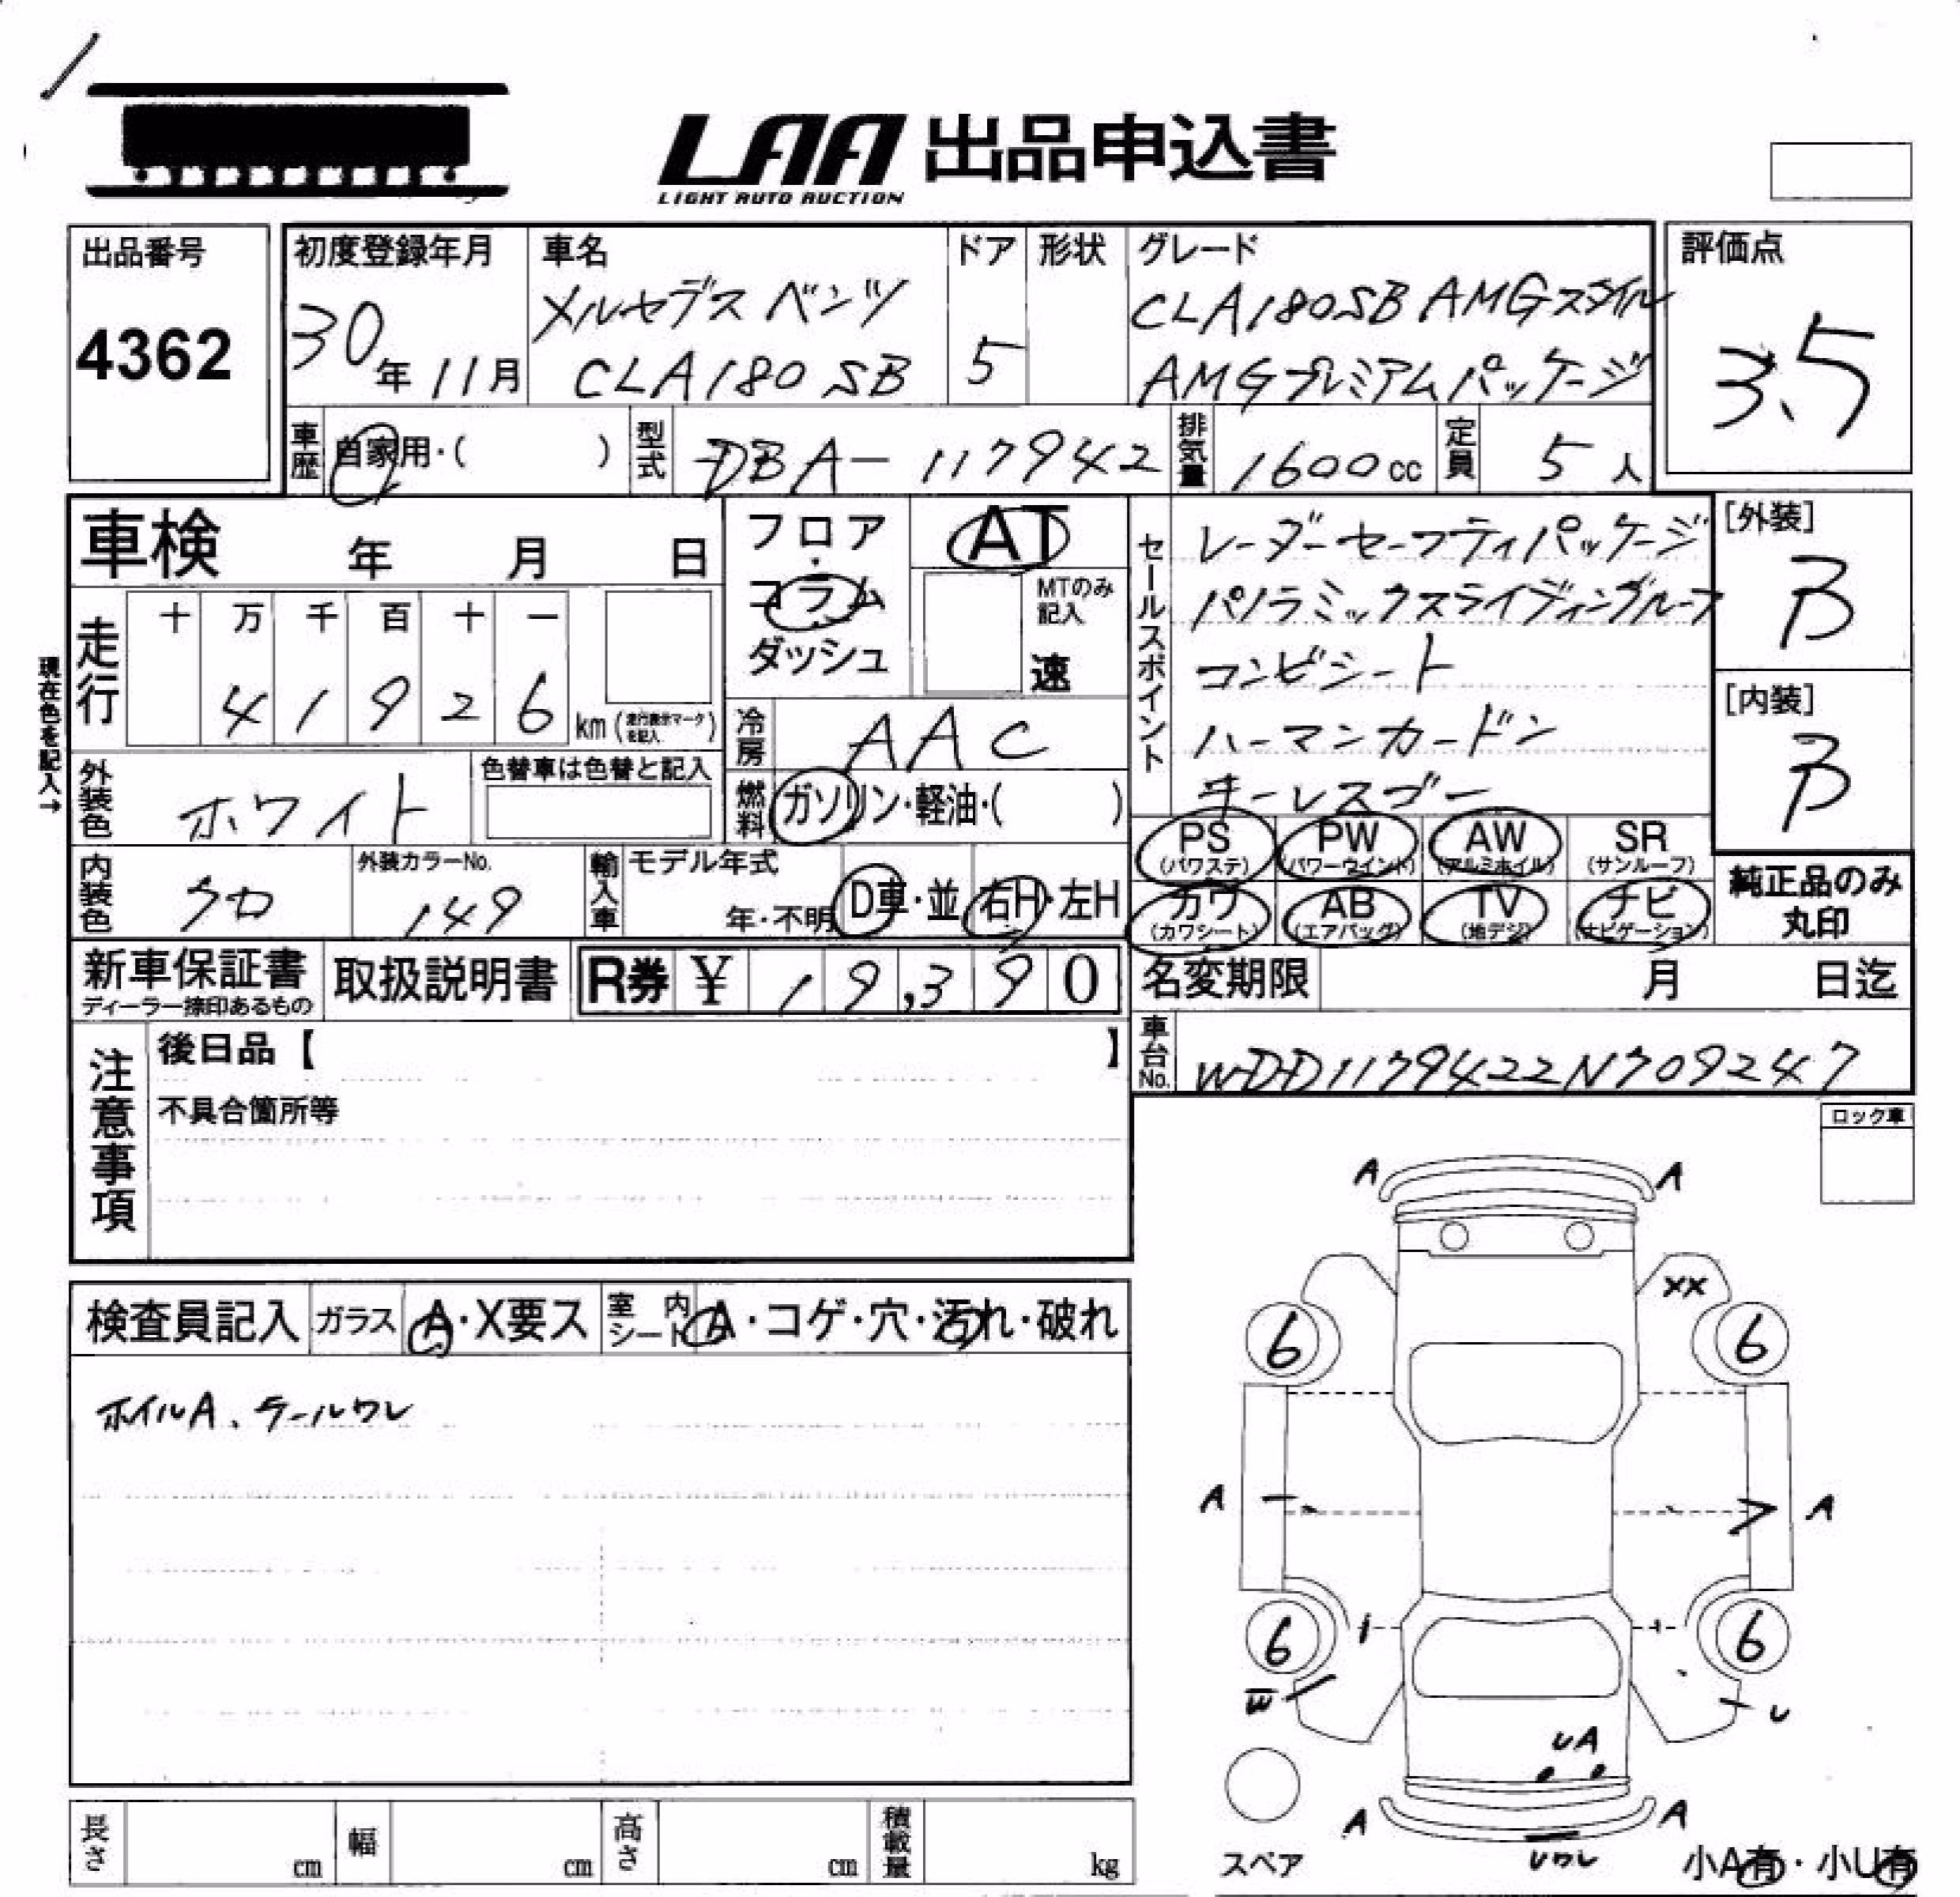 LAA 出品申込書
LIGHT AUTO AUCTION
出品番号
4362
初度登録年月
30年11月
車名
メルセデス ベンツ
CLA180 SB
ドア
5
形状
グレード
CLA180SB AMGスタイル
AMGプレミアムパッケージ
評価点
3.5
車歴
自家用・( )
型式
DBA-117942
排気量
1600cc
定員
5人
車検 年 月 日
フロア・コラム
ダッシュ
AT
MTのみ記入
速
セールスポイント
レーダーセーフティパッケージ
パノラミックスライディングルーフ
コンビシート
ハーマンカードン
キーレスゴー
[外装]
B
[内装]
B
現在色を記入→
走行
十 万 千 百 十 一
4 1 9 2 6 km(走行表示マークを記入)
冷房
AAC
外装色
ホワイト
色替車は色替と記入
燃料
ガソリン・軽油・( )
PS (パワステ)
PW (パワーウインド)
AW (アルミホイル)
SR (サンルーフ)
カワ (カワシート)
AB (エアバッグ)
TV (地デジ)
ナビ (ナビゲーション)
純正品のみ
丸印
内装色
クロ
外装カラーNo.
149
輸入車
モデル年式
年・不明
D車・並
右H・左H
新車保証書
ディーラー捺印あるもの
取扱説明書
R券 ¥ 19,390
名変期限 月 日迄
車台No.
WDD1179422N709247
注意事項
後日品【 】
不具合箇所等
ロック車
検査員記入
ガラス
A・X要ス
室内シート
A・コゲ・穴・汚れ・破れ
ホイルA、テールワレ
A A
XX
6 6
A A
6 6
W U
UA
A A
Uワレ
スペア
小A有・小U有
長さ cm
幅 cm
高さ cm
積載量 kg